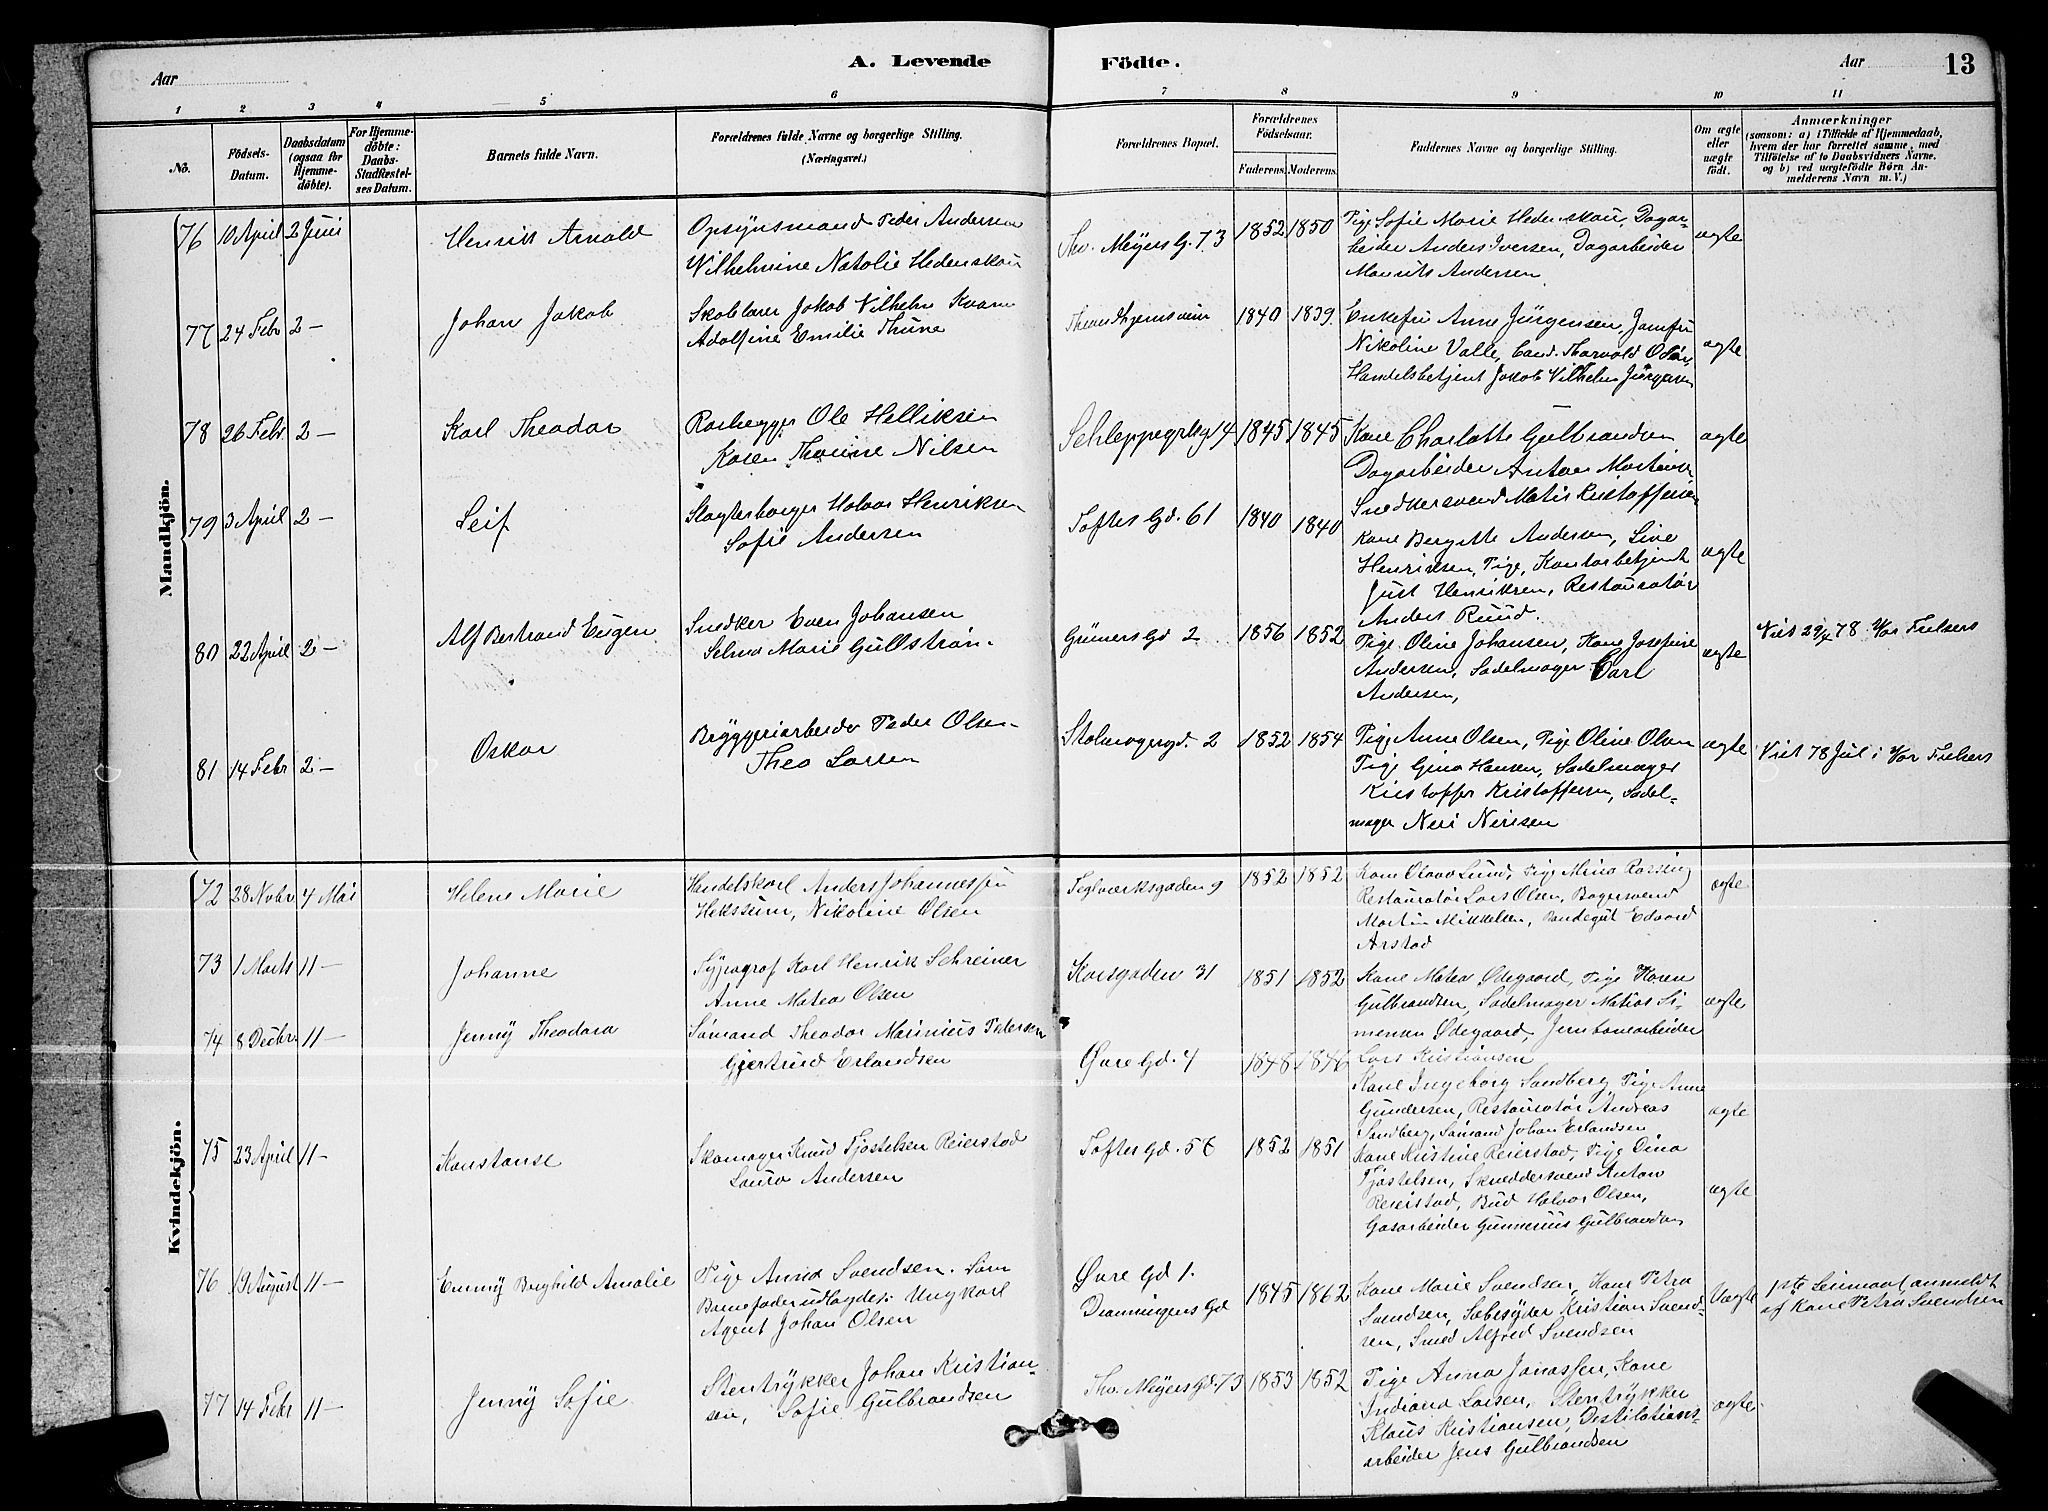 Aar
A. Levende
Födte.
Aar
13
1 2 3 4 5 6 7 8 9 10 11
No.
Födsels-
Datum.
Daabsdatum
(ogsaa for
Hjemme-
døbte).
For Hjemme-
døbte:
Daabs-
Stadfæstel-
ses Datum.
Barnets fulde Navn.
Forældrenes fulde Navne og borgerlige Stilling.
(Næringsvei.)
Forældrenes Bopæl.
Forældrenes
Födselsaar.
Faderens. Moderens.
Faddernes Navne og borgerlige Stilling.
Om ægte
eller
uægte
födt.
Anmærkninger
(saasom: a) i Tilfælde af Hjemmedaab,
hvem der har forrettet samme, med
Tilföielse af to Daabsvidners Navne,
og b) ved uægtefödte Börn An-
melderens Navn m. V.)
Mandkjön.
76 10 April 2 Juni
Henrik Arnold
Opsynsmand Peder Andersen
Wilhelmine Natalie Hedenskou
Thv. Meyers G. 73
1852 1850
Pige Sofie Marie Hedenskou, Dagar-
beider Anders Iversen, Dagarbeider
Maurits Andersen
ægte
77 24 Febr 2 —
Johan Jakob
Jakob Vilhelm
Adolfine Emilie Thune
1840 1839
Enkefru Anne Jürgensen, Jomfru
Nikoline Valle, Cand. Thorvald
Handelsbetjent Jakob Vilhelm Jürgensen
ægte
78 26 Febr. 2 —
Karl Theodor
Ole Helliksen
Karen Thorine Nilsen
Schleppegrelsg 14
1845 1845
Kone Charlotte Gulbrandsen
Dagarbeider Anton Martinsen
Snedkersvend Matis Kristoffersen
ægte
79 3 April 2 —
Leif
Slagterborger Halvor Henriksen
Sofie Andersen
Toftes Gd. 61
1840 1840
Kone Bergitte Andersen, Live
Henriksen, Pige, Kontorbetjent
Just Henriksen, Restauratør
Anders Ruud.
ægte
80 22 April 2 —
Alf Bertrand Eugen
Snedker Even Johansen
Selma Marie Gullstrøn.
Grüners Gd 2
1856 1852
Pige Oline Johansen, Kone Josefine
Andersen, Sadelmager Carl
Andersen,
ægte
Viet 78 Vor Frelsers
81 14 Febr 2 —
Oskar
Bryggeriarbeider Peder Olsen
Thea Larsen
Stolmagergd. 2
1852 1854
Pige Anne Olsen, Pige Oline Olsen
Pige Gina Hansen, Sadelmager
Kristoffer Kristoffersen, Sadel-
mager Neri Nerisen
ægte
Viet 78 Jul i Vor Frelsers
Kvindekjön.
72 28 Novbr 4 Mai
Helene Marie
Handelskarl Anders Johannessen
Hekssum, Nikoline Olsen
Teglværksgaden 9
1852 1852
Kone Olava Lund, Pige Mina
Restauratør Lars Olsen, Bagersvend
Martin Mikkelsen, Bandegut Edvard
Arstad
ægte
73 1 Marts 11 —
Johanne
Typograf Karl Henrik Schreiner
Anne Matea Olsen
Korsgaden 31
1851 1852
Kone Matea Ødegaard, Pige Karen
Gulbrandsen, Sadelmager Matias Si-
mensen Ødegaard, Jernbanearbeider
Lars Kristiansen
ægte
74 8 Decbr. 11 —
Jenny Theodora
Sømand Theodor Marinius Pedersen
Gjertrud Erlandsen
Øvre Gd. 4
1848 1846
Kone Ingeborg Sandberg, Pige Anne
Gundersen, Restauratør Andreas
Sandberg, Sømand Johan Erlandsen
ægte
75 23 April 11 —
Konstanse
Skomager Knud Tjøstelsen Reierstad
Laura Andersen
Toftes Gd. 56
1852 1851
Kone Kristine Reierstad, Pige Dina
Tjøstelsen, Skræddersvend Anton
Reierstad, Bud Halvor Olsen,
Gasarbeider Gunnerius Gulbrandsen
ægte
76 19 August 11 —
Emmy Borghild Amalie
Pige Anna Svendsen. Som
Barnefader udlagdes: Ungkarl
Agent Johan Olsen
Øvre Gd 1.
Dronningens Gd
1845 1862
Kone Marie Svendsen, Kone Petra
Svendsen, Sæbesyder Kristian Svend-
sen, Smed Alfred Svendsen
Uægte
1ste Leiermaal anmeldt
af Kone Petra Svendsen
77 14 Febr 11 —
Jenny Sofie
Stentrykker Johan Kristian-
sen, Sofie Gulbrandsen
Thv. Meyers Gd. 73
1853 1852
Pige Anna Jonassen, Kone
Indiana Larsen, Stentrykker
Klaus Kristiansen, Destilations-
arbeider Jens Gulbrandsen
ægte